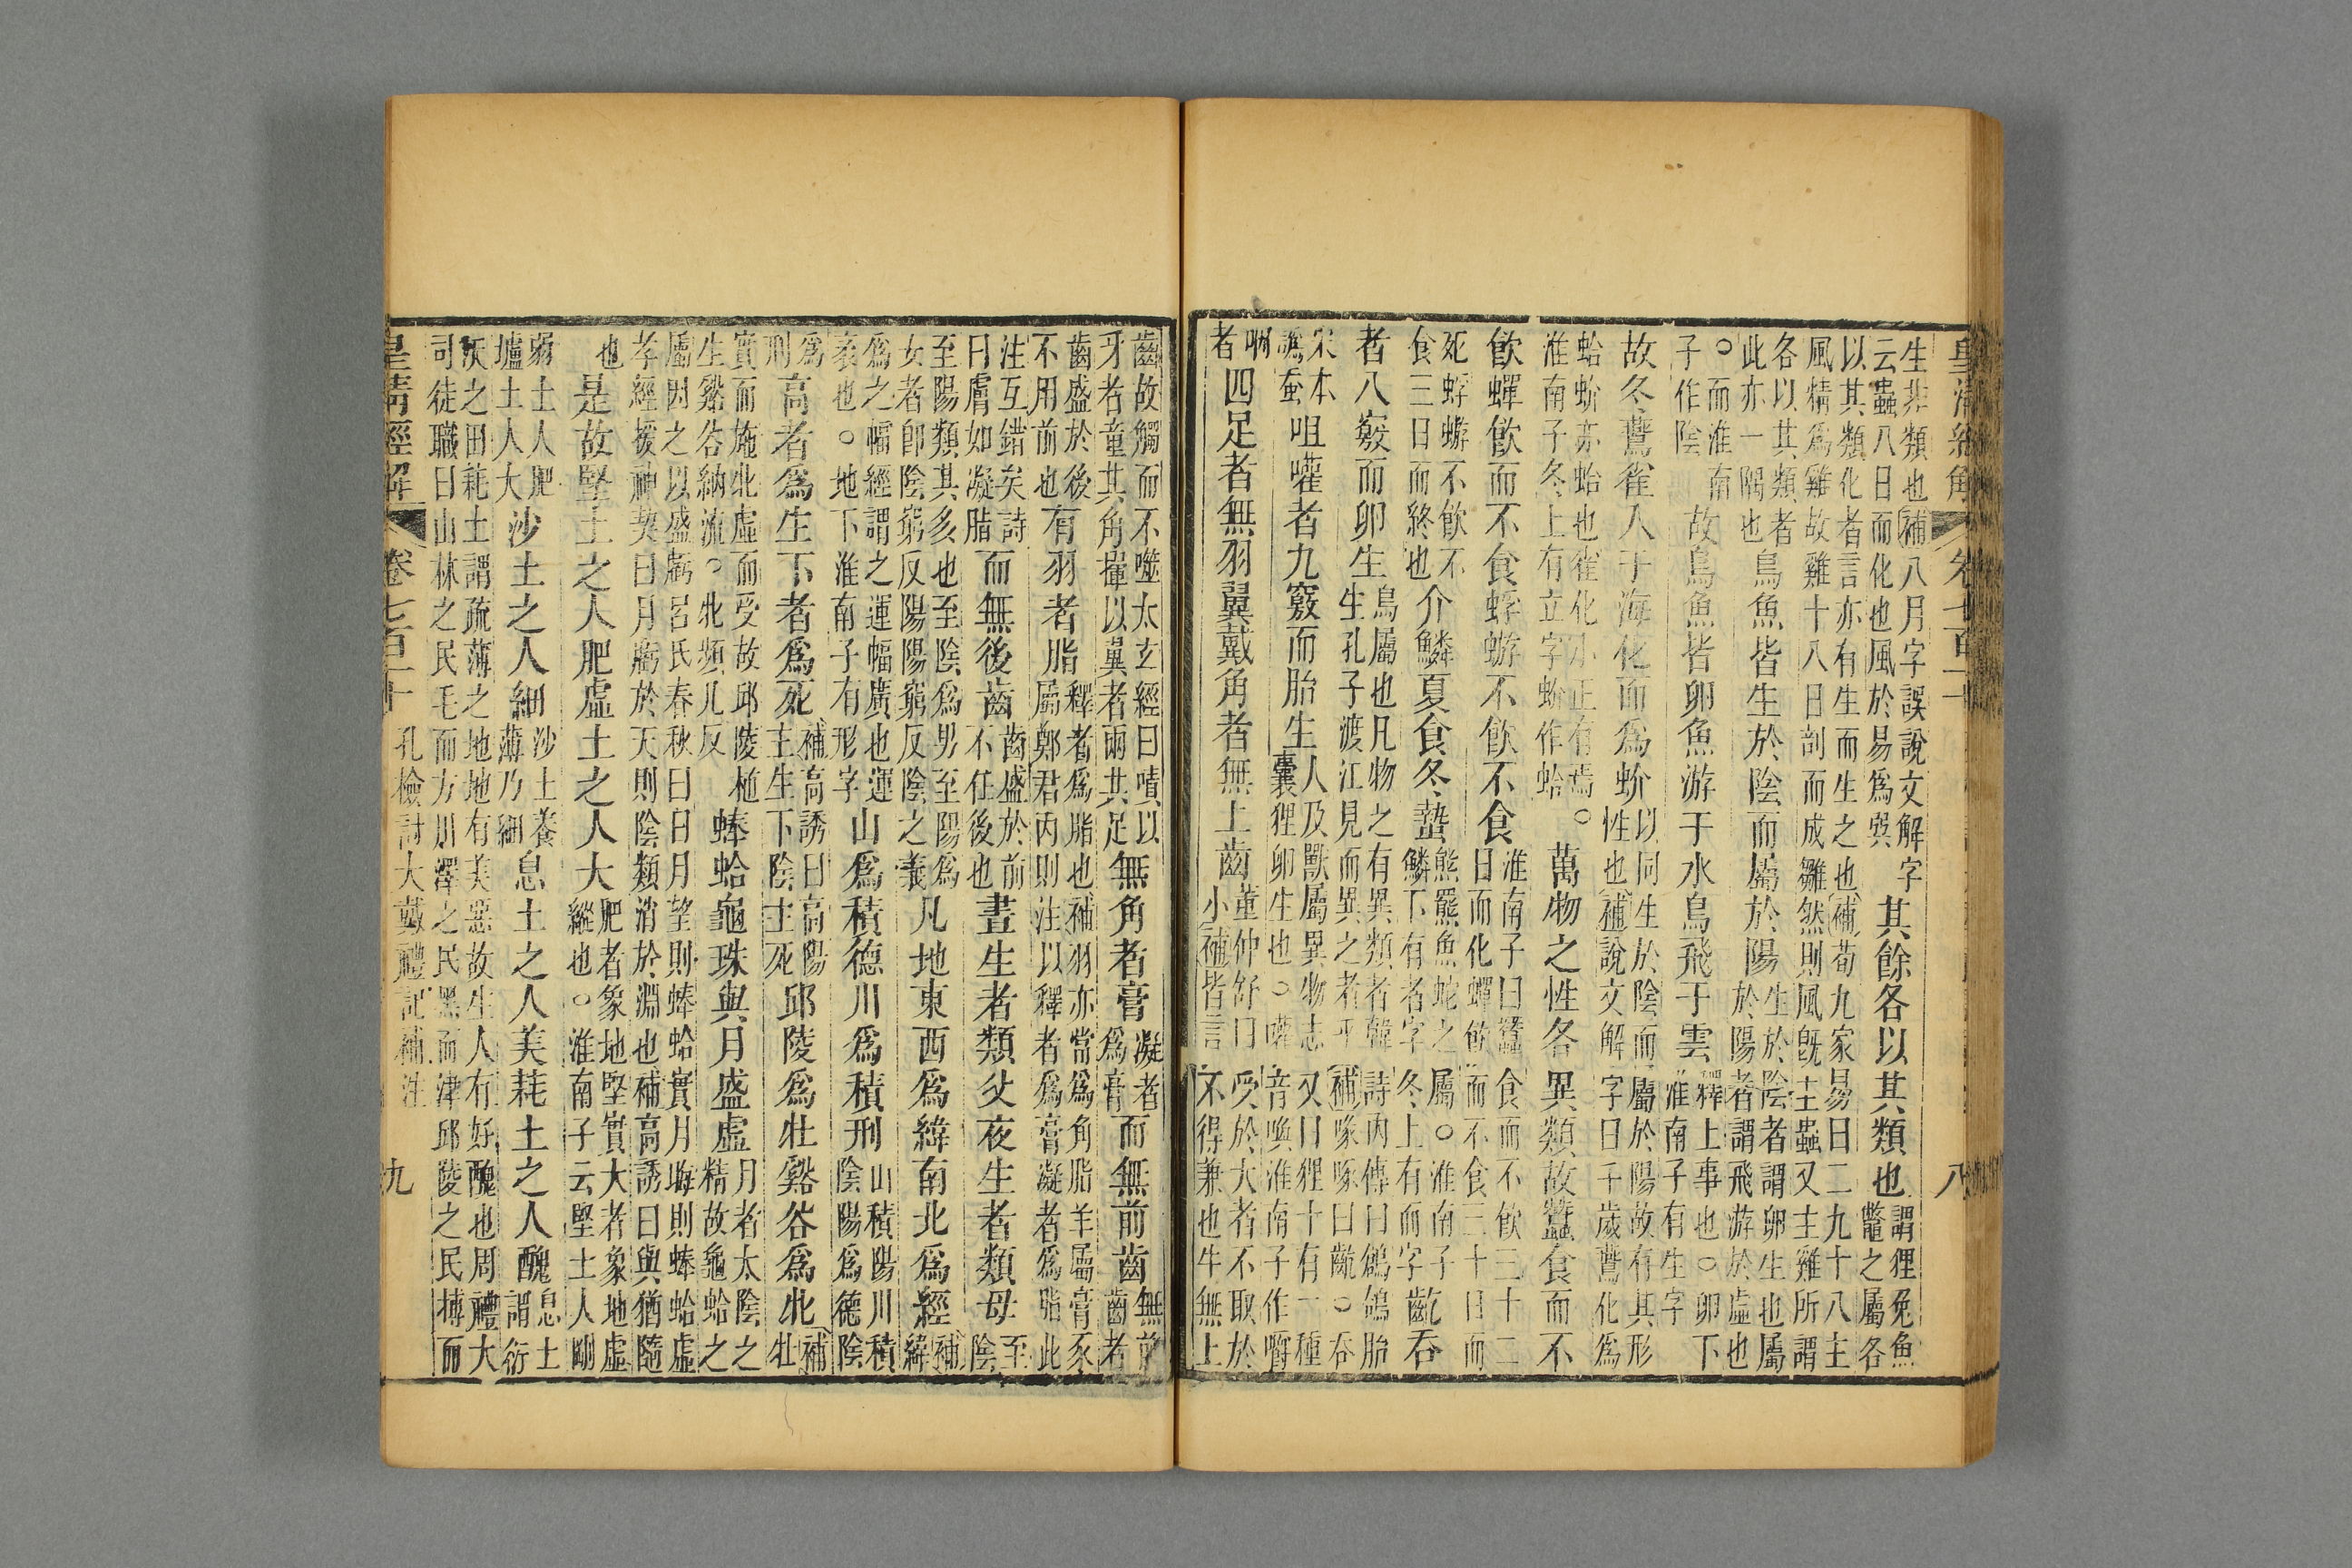 皇清經解 卷七百一十 八
生非類也補八月字誤說文解字
云蟲八日而化也風於易為巽
其餘各以其類也
謂狸兔魚
鼈之屬各
以其類化者言亦有生而生之也補荀九家易曰二九十八主
風精為雞故雞十八日剖而成雛然則風旣主蟲又主雞所謂
各以其類者
此亦一隅也
鳥魚皆生於陰而屬於陽
生於陰者謂卵生也屬
於陽者謂飛游於虛也
○而淮南
子作陰
故鳥魚皆卵魚游于水鳥飛于雲
釋上事也○卵下
淮南子有生字
故冬鷰雀入于海化而為蚧
以同生於陰而屬於陽故有其形
性也補說文解字曰千歲鷰化為
蛤蚧亦蛤也雀化小正有焉○
淮南子冬上有立字蚧作蛤
萬物之性各異類故蠶食而不
飲蟬飲而不食蜉蝣不飲不食
淮南子曰蠶食而不飲三十二
日而化蟬飲而不食三十日而
死蜉蝣不飲不
食三日而終也
介鱗夏食冬蟄
熊羆魚蛇之屬○淮南子
鱗下有者字冬上有而字
齕吞
者八竅而卵生
鳥屬也凡物之有異類者韓詩內傳曰鷁鴿胎
生孔子渡江見而異之者乎補啄啄曰齕○吞
宋本
譌蚕
咀嚾者九竅而胎生
人及獸屬異物志又曰狸十有一種
囊狸卵生也○嚾音喚淮南子作嚼
咽
者
四足者無羽翼戴角者無上齒
董仲舒曰受於大者不取於
小補皆言不得兼也牛無上
齒故觸而不噬太玄經曰嘖以
牙者童其角揮以翼者兩其足
無角者膏
凝者
為膏
而無前齒
無前
齒者
齒盛於後
不用前也
有羽者脂
釋者為脂也補羽亦當為角脂羊屬膏豕
屬鄭君內則注以釋者為膏凝者為脂此
注互錯矣詩
曰膚如凝脂
而無後齒
齒盛於前
不任後也
晝生者類父夜生者類母
至
陰
至陽類其亥也至陰為男至陽為
女者卽陰窮反陽陽窮反陰之義
凡地東西為緯南北為經
補
緯
為之幅經謂之運幅廣也運
袤也○地下淮南子有形字
山為積德川為積刑
山積陽川積
陰陽為德陰
為
刑
高者為生下者為死
補高誘曰高陽
主生下陰主死
邱陵為牡谿谷為牝
補
牡
實而施北虛而受故邱陵柂
生谿谷納流○牝頻几反
蜯蛤龜珠與月盛虛
月者太陰之
精故龜蛤之
屬因之以盛虧呂氏春秋曰日月望則蜯蛤實月晦則蜯蛤虛
孝經援神契曰月虧於天則陰類消於淵也補高誘曰與猶隨
也
是故堅土之人肥虛土之人大
肥者象地堅實大者象地虛
縱也○淮南子云堅土人剛
弱土人肥
壚土人大
沙土之人細
沙土養
薄乃細
息土之人美耗土之人醜
息土
謂衍
沃之田耗土謂疏薄之地地有美惡故生人有好醜也周禮大
司徒職曰山林之民毛而方川澤之民黑而津邱陵之民摶而
皇清經解 卷七百一十 孔檢討大戴禮記補注 九